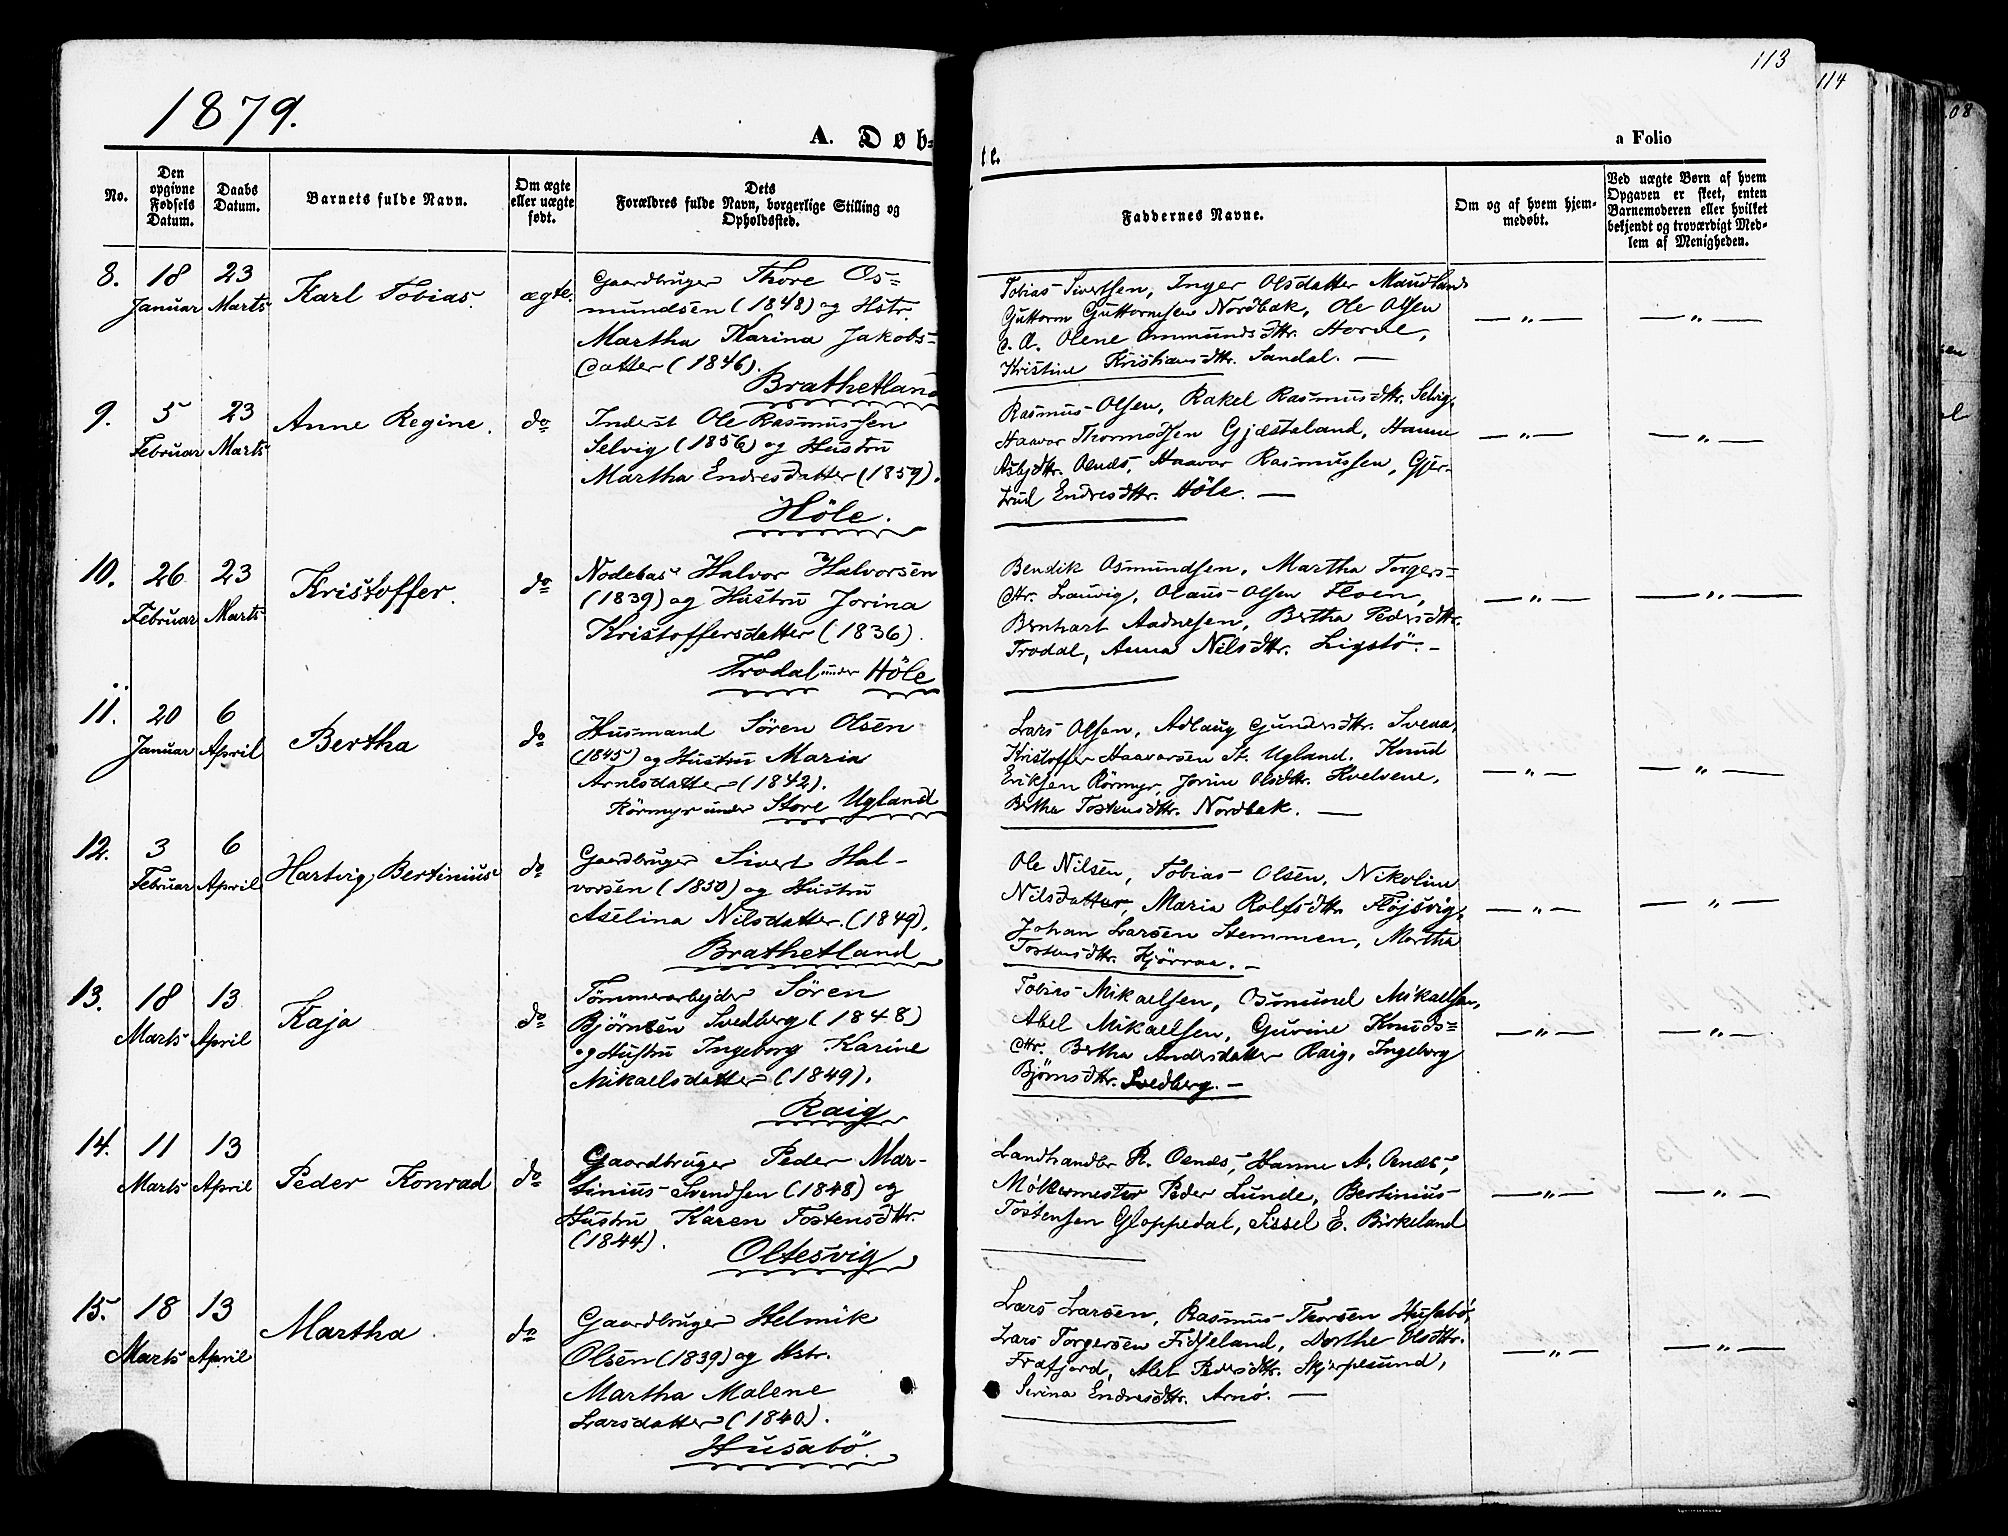 113
114
08
1879.
A. Døb=
te.
a Folio
No.
Den opgivne Fødsels Datum.
Daabs Datum.
Barnets fulde Navn.
Om ægte eller uægte født.
Dets Forældres fulde Navn, borgerlige Stilling og Opholdssted.
Faddernes Navne.
Om og af hvem hjem-
medøbt.
Ved uægte Børn af hvem
Opgaven er skeet, enten
Barnemoderen eller hvilket
bekjendt og troværdigt Med-
lem af Menigheden.
8. 18 Januar 23 Marts Karl Tobias. ægte.
Gaardbruger Thore Os=
mundsen (1848) og Hstr.
Martha Karina Jakobs=
datter (1846).
Brathetland
Tobias Sivertsen, Inger Olsdatter Maudland
Guttorm Guttormsen Nordbøk, Ole Olsen
s. A. Olene Ommundsdttr. Horve,
Kristine Kristiansdttr. Sandal. —
— „ — — „ —
9. 5 Februar 23 Marts Anne Regine. do
Inderst Ole Rasmussen
Selvig (1856) og Hustru
Martha Endresdatter (1859).
Höle.
Rasmus Olsen, Rakel Rasmusdttr. Selvig,
Haavar Thormodsen Gjæstaland, Hanne
Asbjdttr. Oends, Haavar Rasmussen, Gjer-
trud Endresdttr. Höle. —
— „ — — „ —
10. 26 Februar 23 Marts Kristoffer. do
Nodebas Halvor Halvorsen
(1839) og Hustru Jorina
Kristoffersdatter (1836).
Trodal under Höle
Bendik Osmundsen, Martha Torgers=
dttr. Lauvig, Olaus Olsen Floen,
Bernhart Aadnesen, Bertha Pedersdttr.
Trodal, Anna Nilsdttr. Ligstö. -
— „ — — „ —
11. 20 Januar 6 April Bertha do
Husmand Sören Olsen
(1845) og Hustru Maria
Arnesdatter (1842).
Körmyr under Store Ugland
Lars Olsen, Adlaug Gundersdttr. Svena,
Kristoffer Haavarsen St. Ugland. Knud
Eriksen Körmyr, Jorine Olsdttr. Kvelvene,
Bertha Tostensdttr. Nordbøk. —
— „ — — „ —
12. 3 Februar 6 April Hartvig Bertinius do
Gaardbruger Sivert Hal-
vorsen (1850) og Hustru
Aselina Nilsdatter. (1849).
Brathetland
Ole Nilsen, Tobias Olsen, Nikoline
Nilsdatter, Maria Rolfsdttr. Fløjsvig,
Johan Larsen Stemmen, Martha
Tostensdttr. Kjörraa. -
— „ — — „ —
13. 18 Marts 13 April Kaja do
Tömmerarbejder Sören
Björnsen Svedberg (1848)
og Hustru Ingeborg Karine
Mikaelsdatter (1849).
Raig
Tobias Mikaelsen, Osmund Mikaelsen,
Abel Mikaelsen, Gurine Knuds=
dttr. Bertha Andersdatter Raig, Ingeborg
Björnsdttr. Svedberg. —
— „ — — „ —
14. 11 Marts 13 April Peder Konrad do
Gaardbruger Peder Mar-
tinius Svendsen (1848) og
Hustru Karen Tostensdttr.
(1844).
Oltesvig
Landhandler R. Oends, Hanne A. Oends,
Mökermester Peder Lunde, Bertinius
Tostensen Gloppedal, Sissel E. Birkeland
— „ — — „ —
15. 18 Marts 13 April Martha. do
Gaardbruger Helmik
Olsen (1839) og Hstr.
Martha Malene
Larsdatter (1840).
Husabö.
Lars Larsen, Rasmus Thorsen Husabö,
Lars Torgersen Fidjeland, Dorthe Olsdttr.
Frafjord, Alet Pedersdttr. Skjørpesund,
Serina Endresdttr. Arnø. —
— „ — — „ —